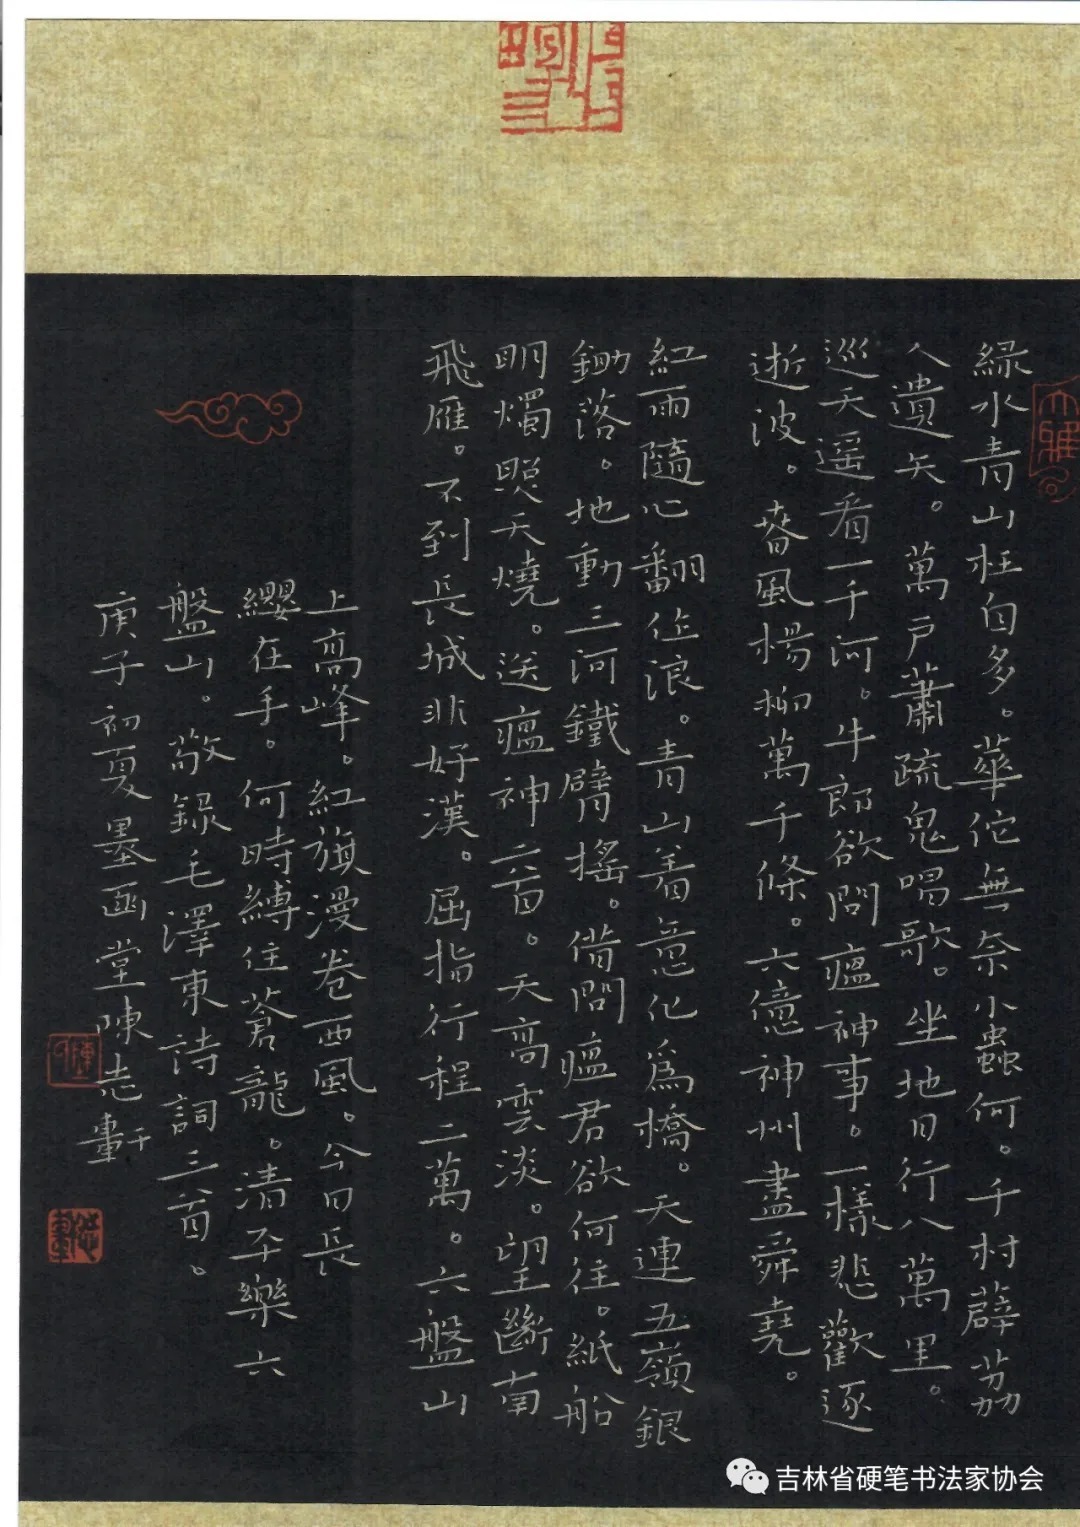 綠水青山枉自多。華佗無奈小蟲何。千村薜荔
人遺矢。萬戶蕭疏鬼唱歌。坐地日行八萬里。
巡天遥看一千河。牛郎欲問瘟神事。一樣悲歡逐
逝波。春風楊柳萬千條。六億神州盡舜堯。
紅雨隨心翻作浪。青山着意化爲橋。天連五嶺銀
鋤落。地動三河鐵臂搖。借問瘟君欲何往。紙船
明燭照天燒。送瘟神二首。天高雲淡。望斷南
飛雁。不到長城非好漢。屈指行程二萬。六盤山
上高峰。紅旗漫卷西風。今日長
纓在手。何時縛住蒼龍。清平樂六
盤山。敬錄毛澤東詩詞三首。
庚子初夏墨函堂陳志軒
大雅
吉林省硬笔书法家协会